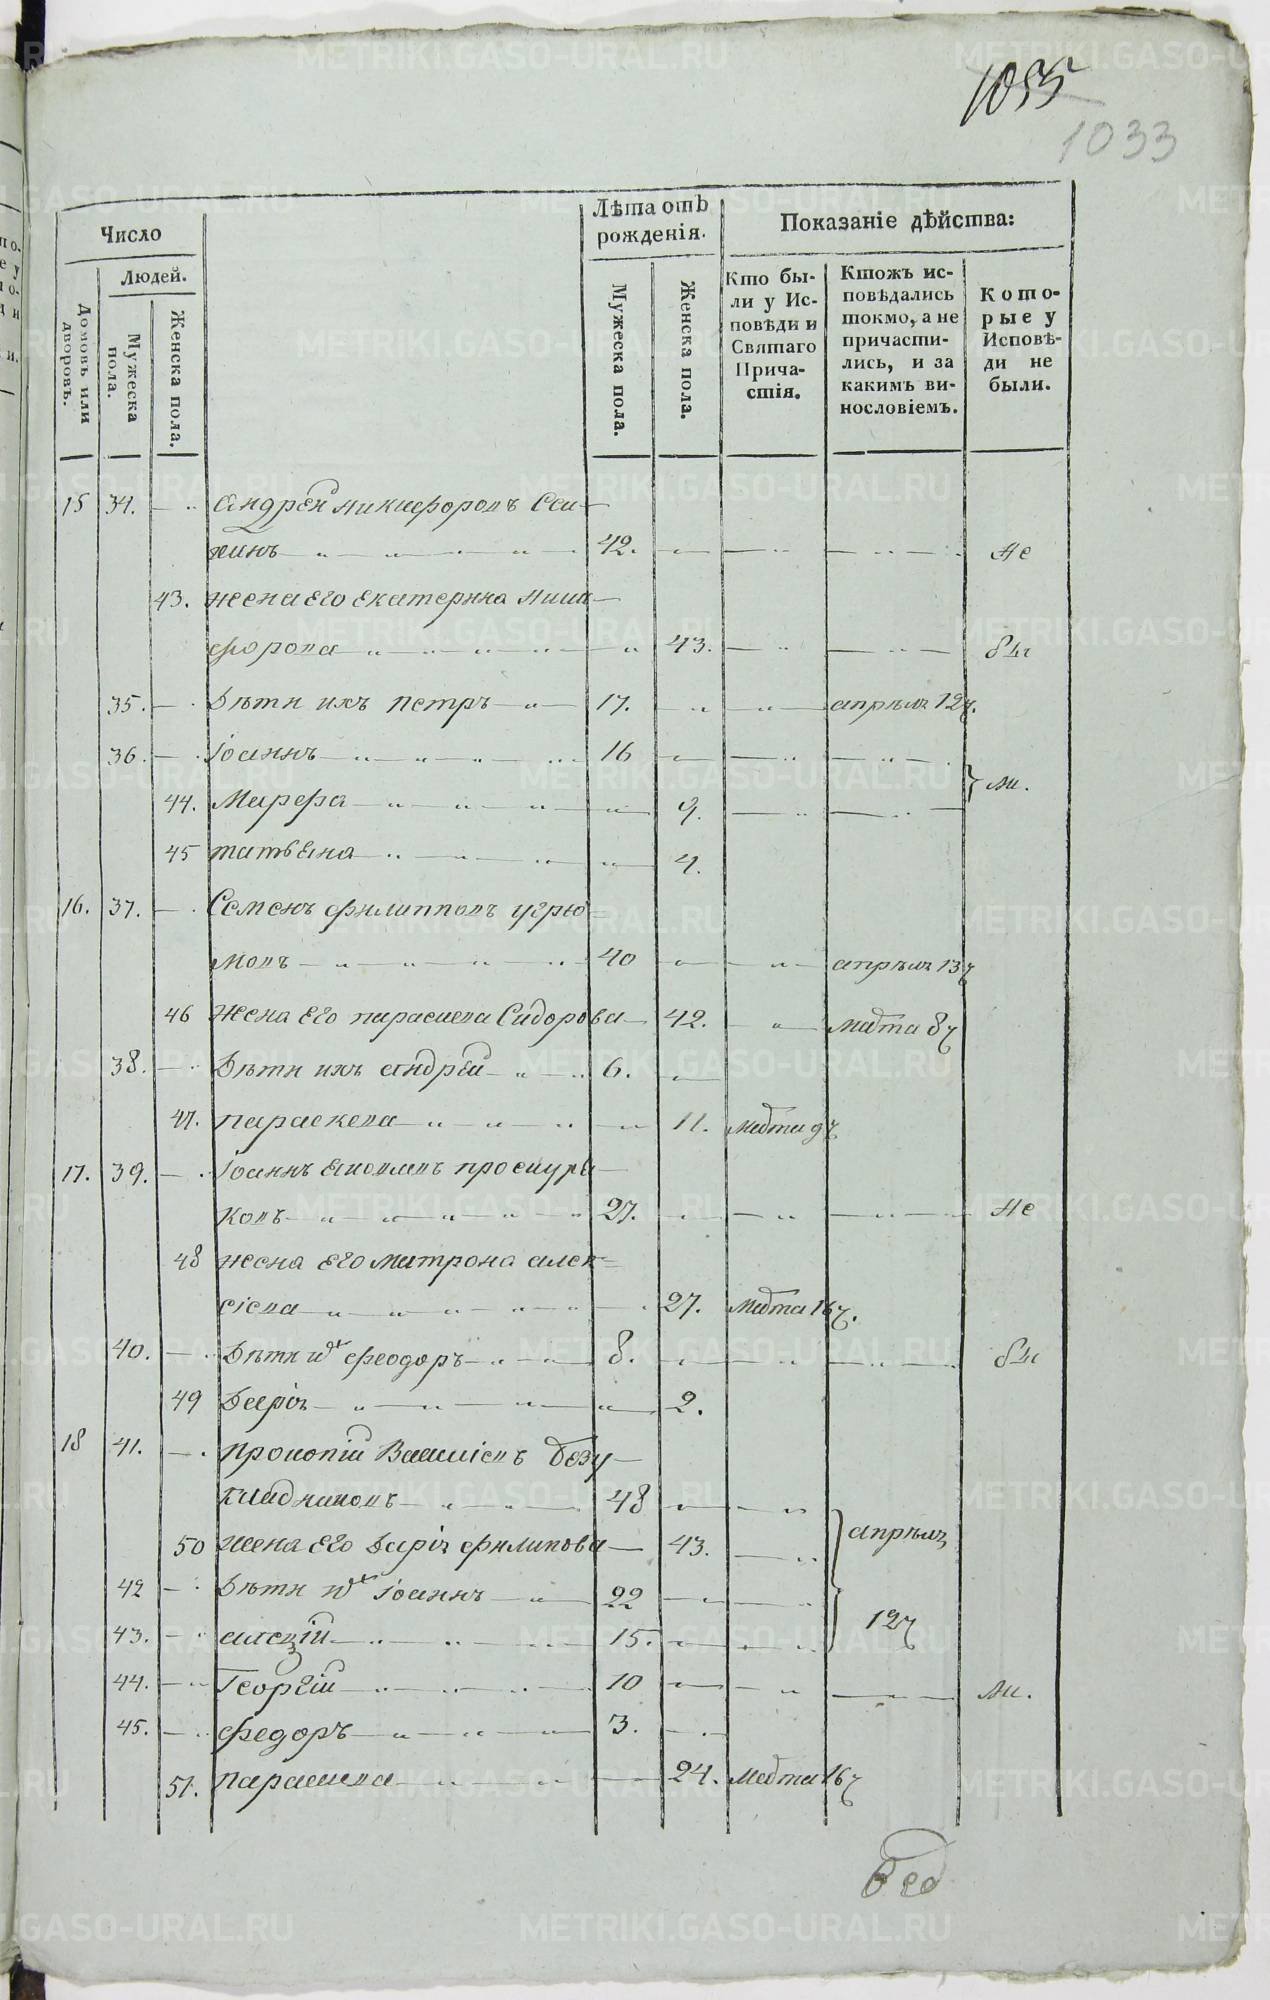 1055
1033
Число
Людей.
Домовъ или дворовъ.
Мужеска пола.
Женска пола.
Лѣта отъ рожденія.
Мужеска пола.
Женска пола.
Показаніе дѣйства:
Кто бы-
ли у Ис-
повѣди и
Святаго
Прича-
стія.
Ктожъ ис-
повѣдались
токмо, а не
причасти-
лись, и за
какимъ ви-
нословіемъ.
Кото-
рые у
Исповѣ-
ди не
были.
15 34. Андрей Никифоровъ
42. Не
43. жена его Екатерина Ники-
форова 43. бы
35. Дѣти ихъ Петръ 17. апрѣля 12
36. Іоаннъ 16
ли.
44. Марфа 9.
45 татьяна 4.
16. 37. Семенъ филипповъ угрю-
мовъ 40 апрѣля 13
46 Жена его параскева Сидорова 42. марта 8
38. Дѣти ихъ андрей 6.
47. параскева 11. марта 9
17. 39. Іоаннъ Яковлевъ проскуря-
ковъ 27. Не
48 жена его матрона алек-
сіева 27. марта 16
40. Дѣти феодоръ 8. бы
49 Дарія 2.
18 41. прокопій Василіевъ
48
50 жена его Дарія филипова 43. апрѣля
42 Дѣти Іоаннъ 22
12
43. алексій 15.
44. Георгій 10 ли.
45. федоръ 3.
51. параскева 24. марта 16
METRIKI.GASO-URAL.RU